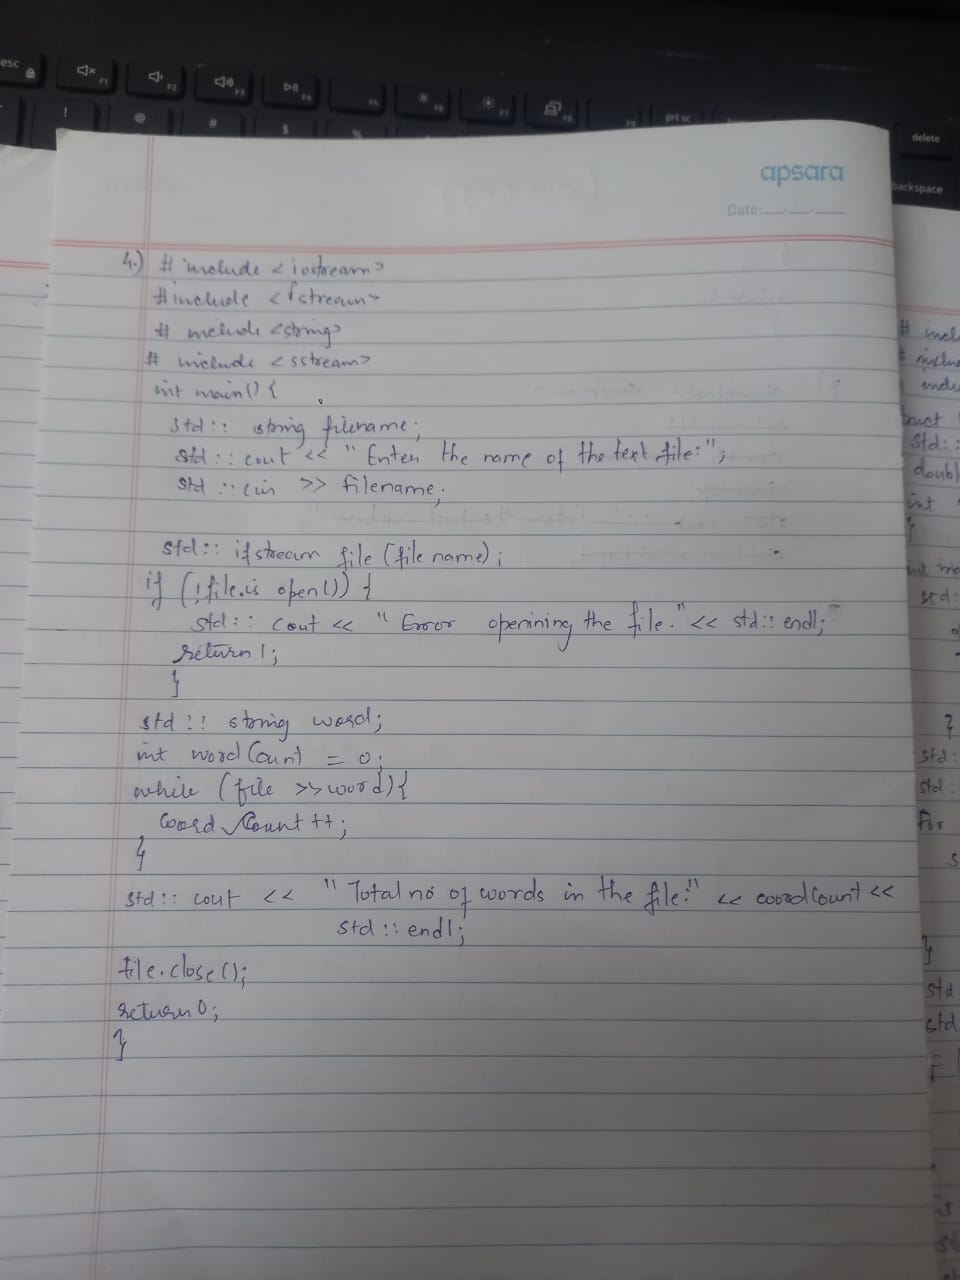 esc
F1
F2
F3
F4
F5
F6
prt sc
delete
backspace
! @ # $ %
apsara
Date:
4.) # include <iostream>
#include <fstream>
# include <string>
# include <sstream>
int main() {
std:: string filename;
std::cout << "Enter the name of the text file:";
std::cin >> filename;
std:: ifstream file (file name);
if (!file.is open()) {
std:: cout << "Error openining the file." << std:: endl;
return 1;
}
std:: string word;
int word Count = 0;
while (file >> word) {
word Count ++;
}
std:: cout << "Total no of words in the file:" << wordCount <<
std:: endl;
file.close();
return 0;
}
std::
doubl
int
std:
}
std:
std:
For
s
}
std
std